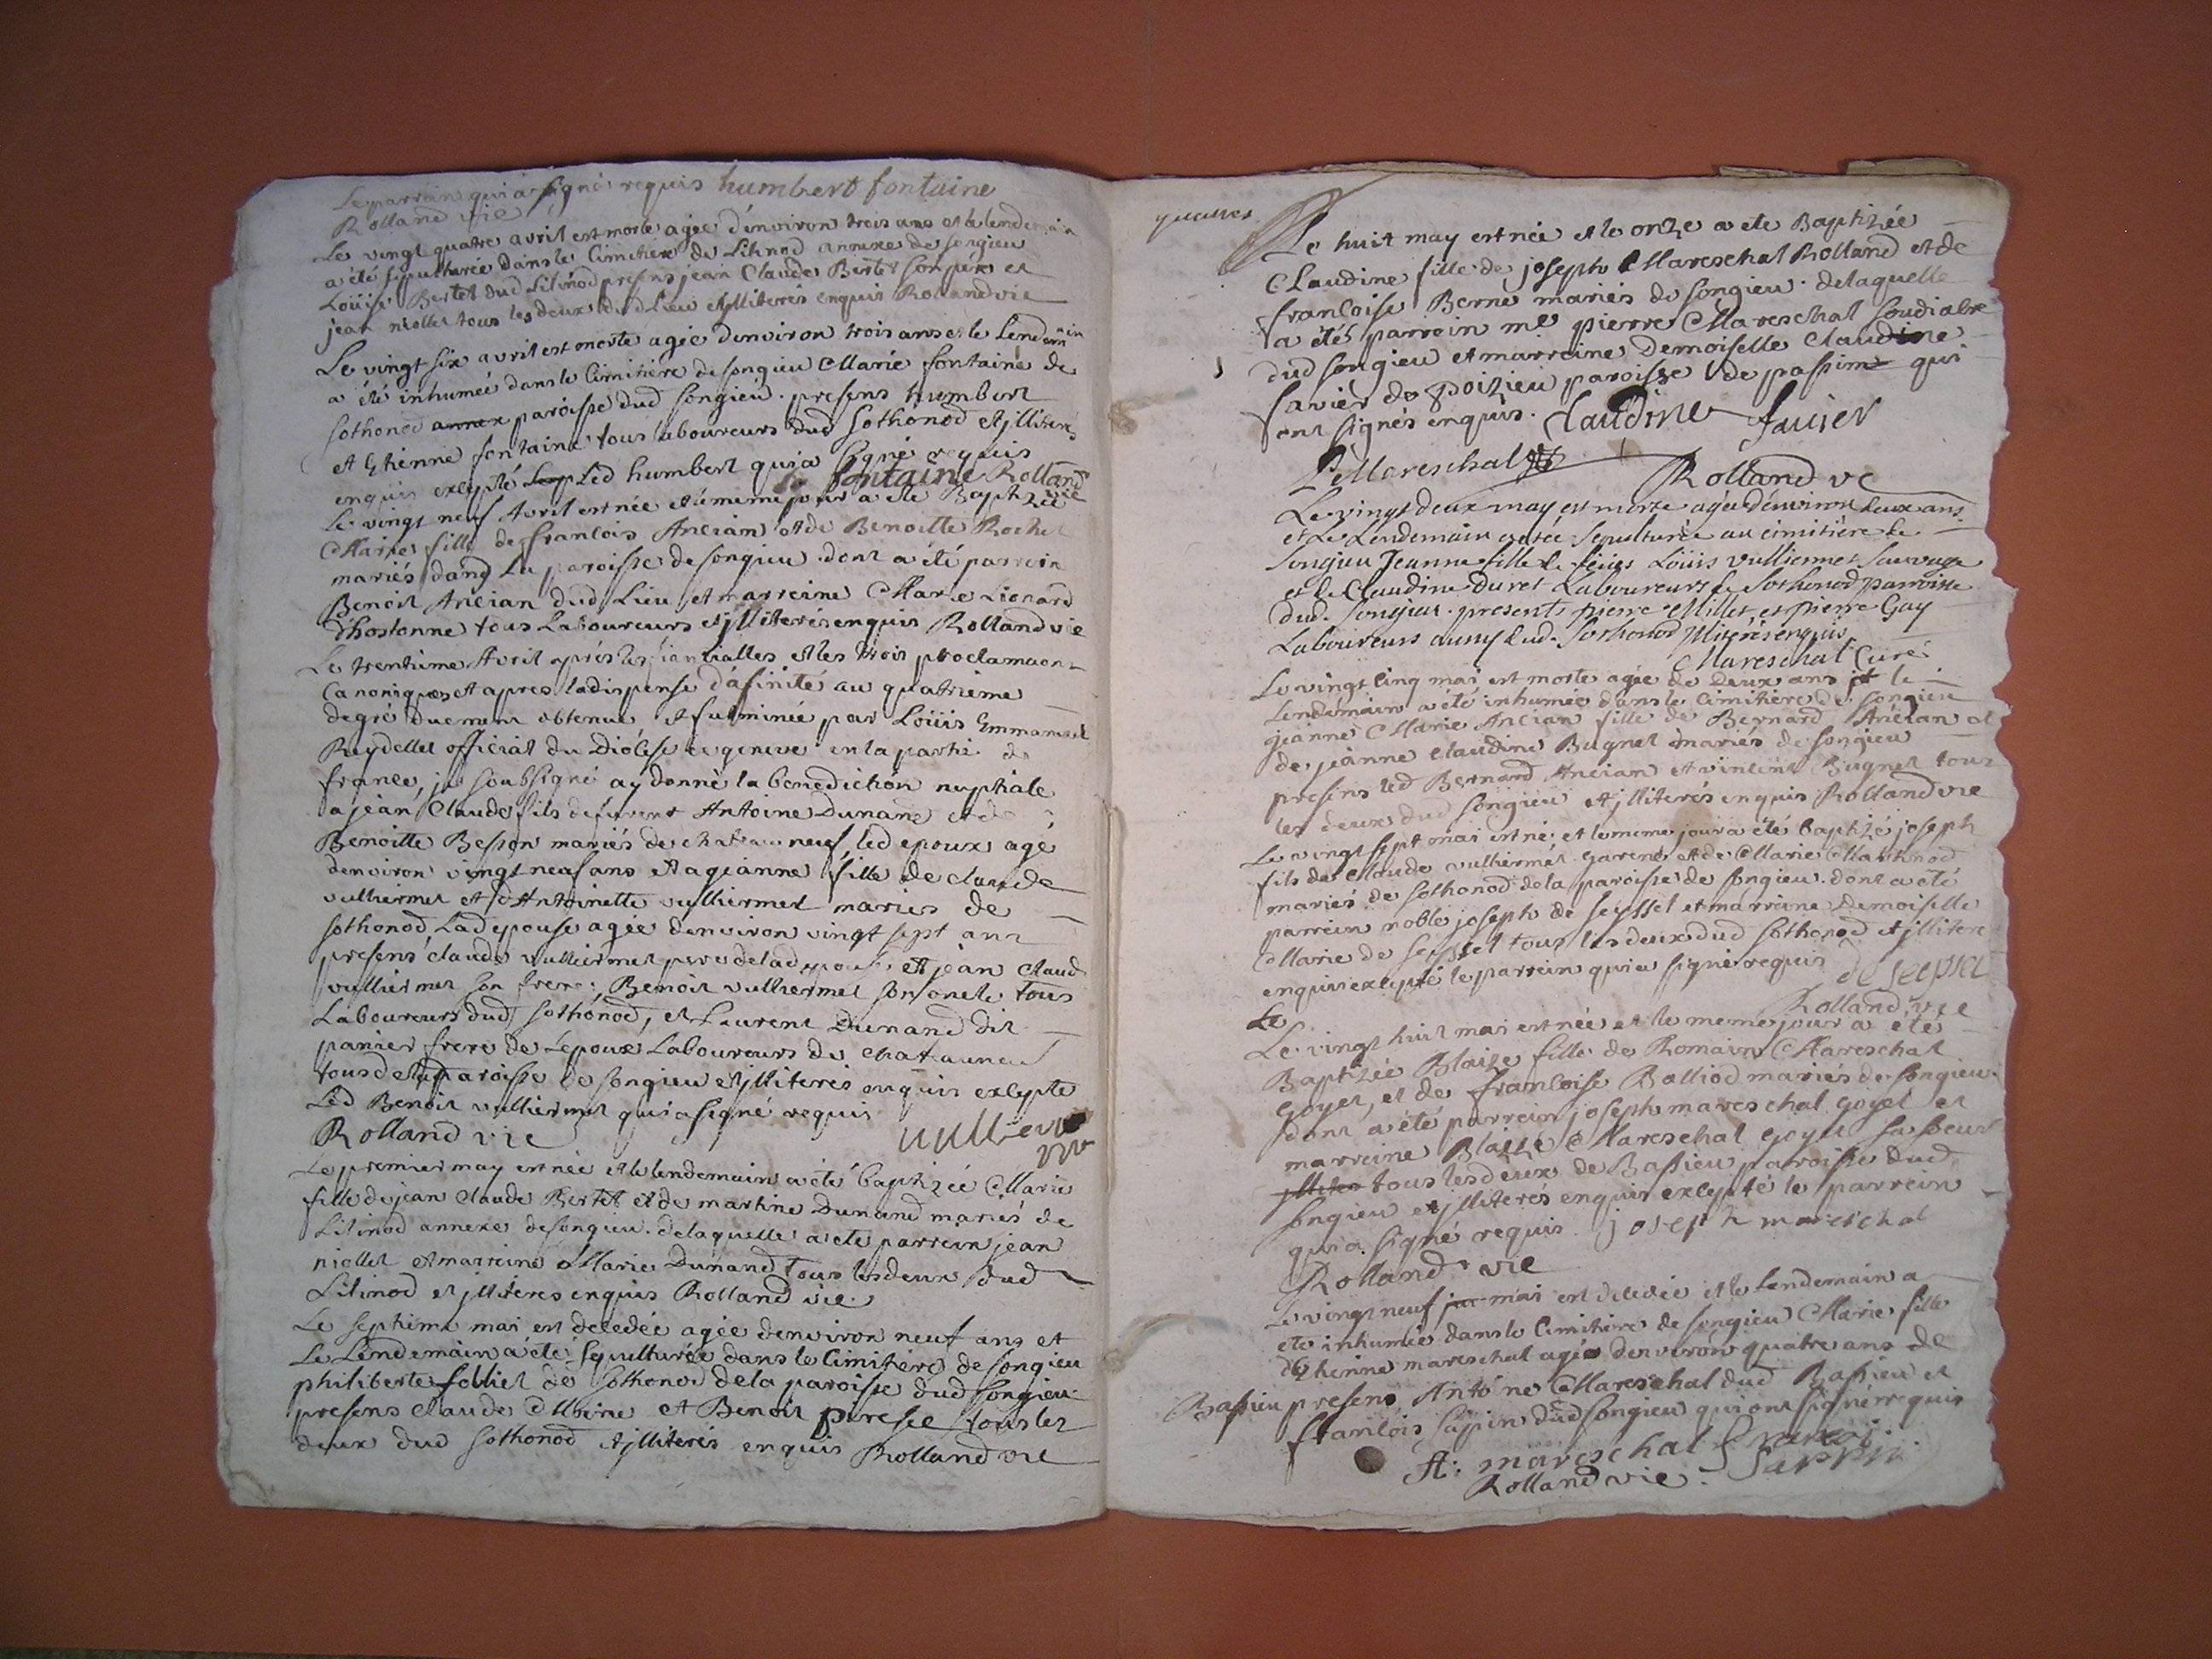 Le parrein qui a signé requis humbert fontaine
Rolland vie
Le vingt quatre avril est morte agée d'environ trois ans et le lendemain
a été sepulturée dans le Cimetiere de Lilinod annexe de songieu
Loüise Bertet dud Lilinod presens jean Claude Bertet son pere et
jean niollet tous les deux dud Lieu et jlliterés enquis Rolland vie
Le vingt six avril est morte agée denviron trois ans et le Lendemain
a été inhumée dans le Cimitiere de songieu Marie fontaine de
sothonod annex paroisse dud songieu. presens humbert
et Ethienne fontaine tous laboureurs dud sothonod et jlliterés
enquis excepté Led humbert qui a signé requis
fontaine Rolland vie
Le vingt neuf Avril est née et le meme jour a ete Baptizée
Marie fille de francois Ancian et de Benoitte Rochet
mariés dans La paroisse de songieu dont a été parrein
Benoit Ancian dud Lieu et marreine Marie Lionard
d'hostonne tous Laboureurs et jlliterés enquis Rolland vie
Le trentiême Avril après les fiancialles et les trois proclamaons
Canoniques et apres la dispense d'afinité au quatrieme
degré duement obtenue et fulminée par Loüis Emmanuel
Reydellet official du Diôcese de geneve en la partie de
france, je soubsigné ay donné la benediction nuptiale
a jean Claude fils de fevent Antoine Dunand et de
Benoitte Besson mariés de chateauneuf, led epoux agé
denviron vingt neuf ans et a jeanne fille de claude
vulliermet et d'Antoinette vulliermet mariés de
sothonod, Lad epouse agée denviron vingt sept ans
presens claude vulliermet pere de lad epouse et jean claude
vulliermet son frere; Benoit vulliermet son oncle tous
Laboureurs dud sothonod, et Laurent Dunand dit
panier frere de Lepoux Laboureurs de chateauneuf
tous de lad paroisse de songieu et jlliterés enquis excepte
Led Benoit vulliermet qui a signé requis
Rolland vie
Le premier may est née et le lendemain a été baptizée Marie
fille de jean claude Bertet et de martine Dunand mariés de
Lilinod annexe de songieu. de laquelle a ete parrein jean
niollet et marreine Marie Dunand tous les deux dud
Lilinod et jlliteres enquis Rolland vie
Le septieme mai est decedée agée denviron neuf ans et
Le Lendemain a été sepulturée dans le Cimitiere de songieu
philiberte de sothonod de la paroisse dud songieu
presens claude et Benoit tous les
deux dud sothonod et jlliterés enquis Rolland vie
quatres
Le huit may est née et le onze a ete Baptizée
Claudine fille de joseph Mareschal Rolland et de
francoise Berne mariés de songieu. de laquelle
a été parrein mre pierre Mareschal soudiacre
dud songieu et marreine Demoiselle claudine
favier de poizieu paroisse de passim qui
ont signés enquis. Claudine favier
P Mareschal
Rolland ve
Le vingt deux may est morte agée d'environ deux ans
et le Lendemain a etée sepulturée au cimitiere de
songieu Jeanne fille de feius Loüis vulliermet sauvage
et de Claudine Duret Laboureurs de Sothonod parroisse
dud. songieu. presents pierre Millet, et pierre Gay
Laboureurs aussy dud. sothonod jlliterés enquis
Mareschal Curé
Le vingt cinq mai est morte agée de deux ans et le
Lendemain a été inhumée dans le Cimitiere de songieu
jeanne Marie Ancian fille de Bernard Ancian et
de jeanne claudine Bugnet mariés de songieu
presens led Bernard Ancian et vincent Bugnet tous
les deux dud songieu et jlliterés enquis Rolland vie
Le vingt sept mai est né et le meme jour a été baptizé joseph
fils de claude vulliermet garenet et de Marie Martinod
mariés de sothonod de la paroisse de songieu. dont a eté
parrein noble joseph de seyssel et marreine demoiselle
Marie de seyssel tous les deux dud sothonod et jlliteré
enquis excepté le parrein qui a signé requis de seyssel
Rolland vie
Le
Le vingt huit mai est née et le meme jour a eté
Baptizée Blaize fille de Romain Mareschal
goyet, et de francoise Balliod mariés de songieu
dont a été parrein joseph mareschal goyet et
marreine Blaize Mareschal goyet sa seur
jlliter tous les deux de Bassieu paroisse dud
songieu et jlliterés enquis excepté le parrein
qui a signé requis. joseph mareschal
Rolland vie
Le vingt neuf jui mai est decedée et le lendemain a
ete inhumée dans le Cimitiere de songieu Marie fille
d'Ethienne mareschal agée denviron quatre ans de
Bassieu presens Antoine Mareschal dud Bassieu et
francois sapin dud songieu qui ont signé requis
A: mareschal francoi sappin
Rolland vie.